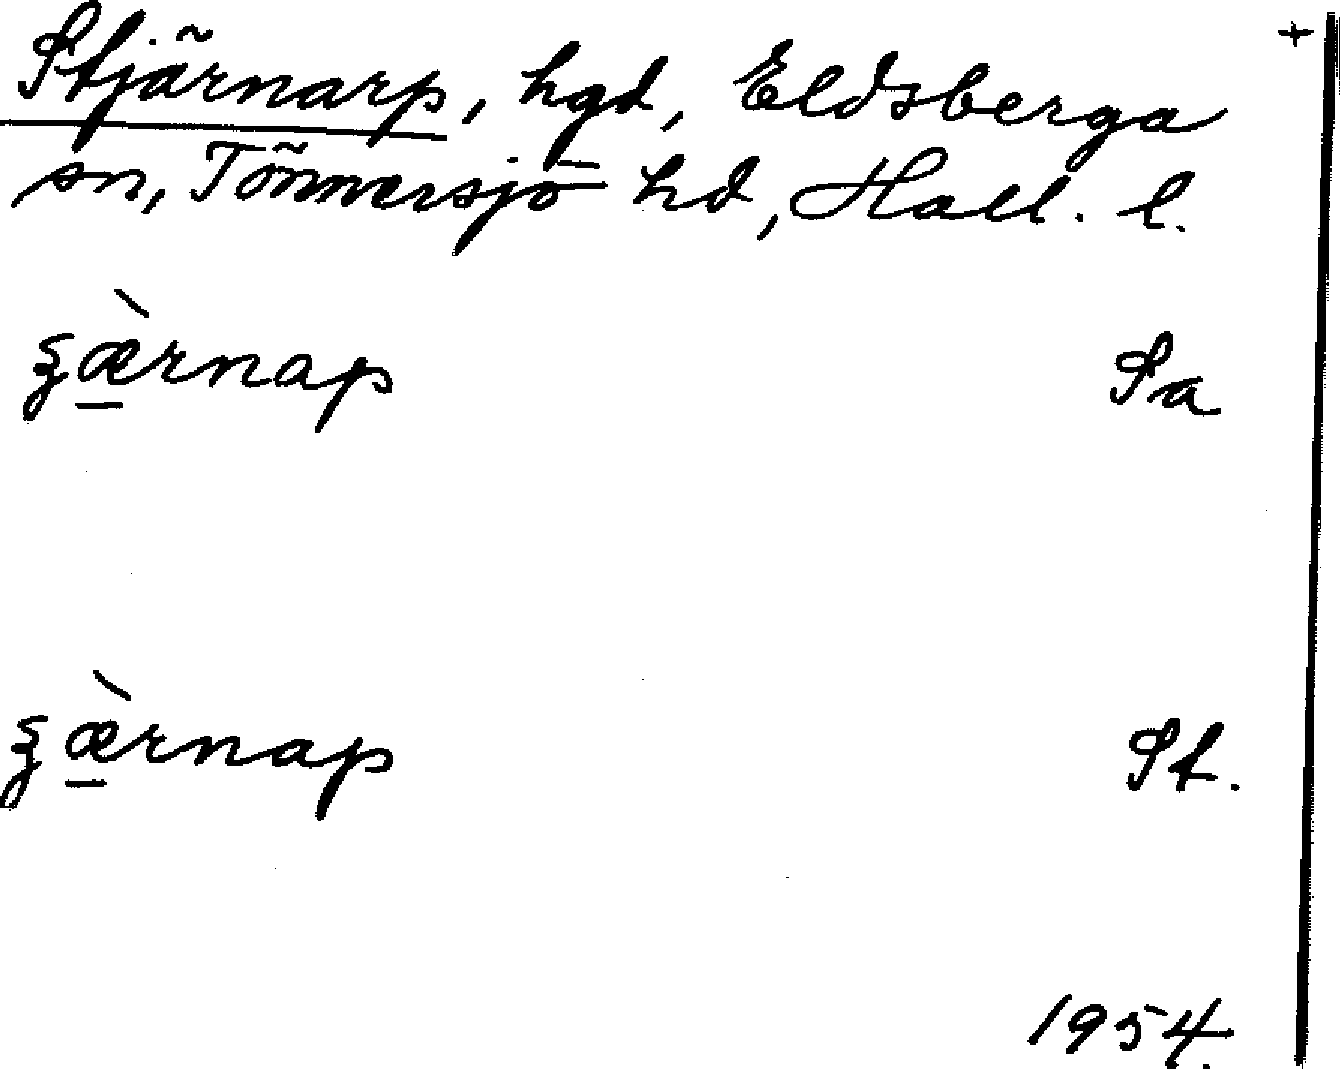 Stjärnarp, hgd, Eldsberga +
sn, Tönnersjö hd, Hall. l.
ʒæ̀rnap Sa
ʒæ̀rnap St.
1954.